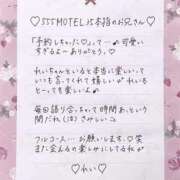 ♡555MOTEL 本指のお兄さん♡
「予約しちゃた♡」って…♪可愛い
すぎるよーありがとう。
れいちゃんといると本当に楽しい！って
いつも言ってくれて 嬉しいが れいも
とーっても楽しいです♡
毎回語り合っちゃて時間あっという
間だね(はさみしい)
フルコース…お願いします♡笑
また会えるの楽しみにしてるね♡
♡れい♡